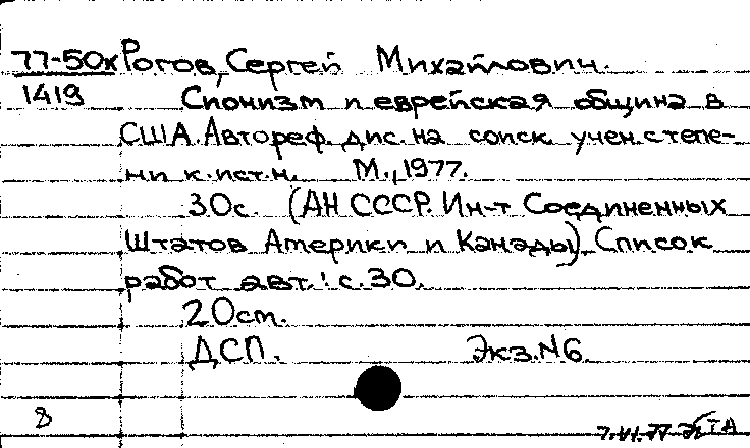 77-50к Рогов, Сергей Михайлович.
1419 Сионизм и еврейская община в
США. Автореф. дис. на соиск. учен. степе-
ни к.ист.н. М., 1977.
30с. (АН СССР. Ин-т Соединенных
Штатов Америки и Канады). Список
работ авт.: с.30.
20см.
ДСП. Экз.№6.
8
7.VI.77